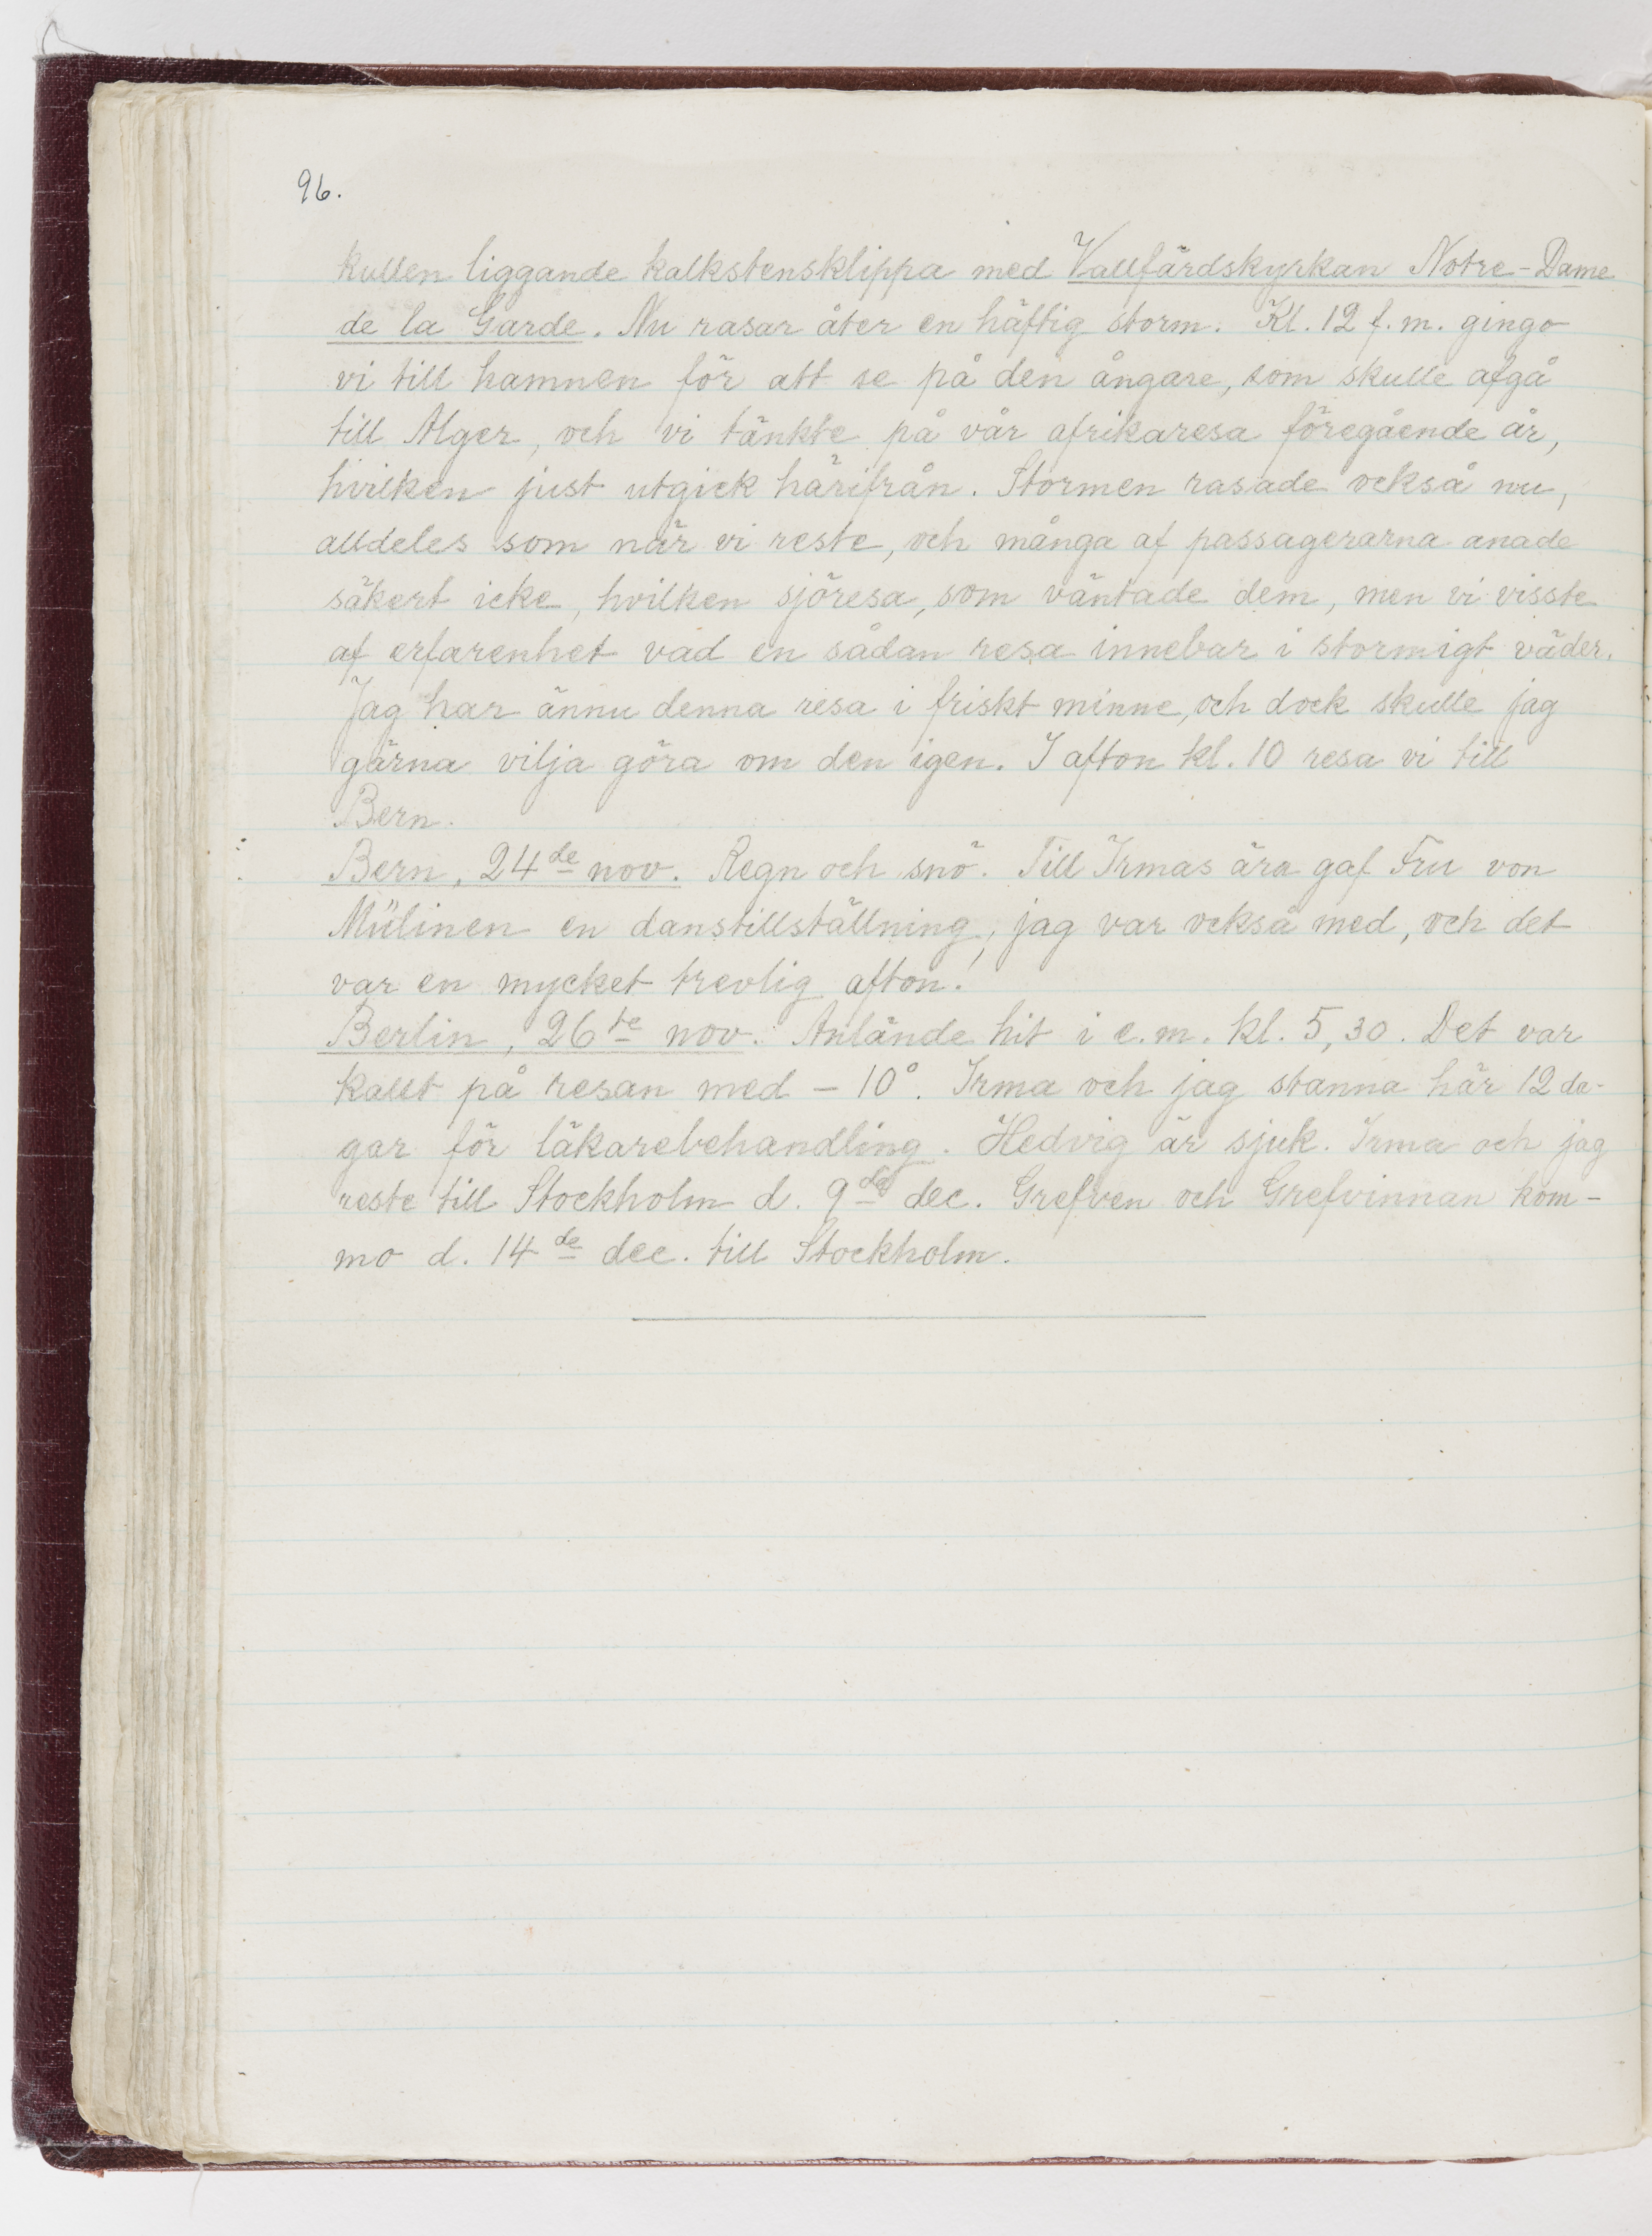 96.
kullen liggande kalkstensklippa med Vallfärdskyrkan Notre-Dame
de la Garde. Nu rasar åter en häftig storm. Kl. 12 f.m. gingo
vi till hamnen för att se på den ångare, som skulle afgå
till Alger, och vi tänkte på vår afrikaresa föregående år,
hvilken just utgick härifrån. Stormen rasade också nu,
alldeles som när vi reste, och många af passagerarna anade
säkert icke, hvilken sjöresa, som väntade dem, men vi visste
af erfarenhet vad en sådan resa innebar i stormigt väder.
Jag har ännu denna resa i friskt minne, och dock skulle jag
gärna vilja göra om den igen. I afton kl. 10 resa vi till
Bern.
Bern, 24de nov. Regn och snö. Till Irmas ära gaf Fru von
Mülinen en danstillställning, jag var också med, och det
var en mycket trevlig afton!
Berlin, 26te nov. Anlände hit i e.m. kl. 5,30. Det var
kallt på resan med – 10°. Irma och jag stanna här 12 da-
gar för läkarebehandling. Hedvig är sjuk. Irma och jag
reste till Stockholm d. 9de dec. Grefven och Grefvinnan kom-
mo d. 14de dec. till Stockholm.